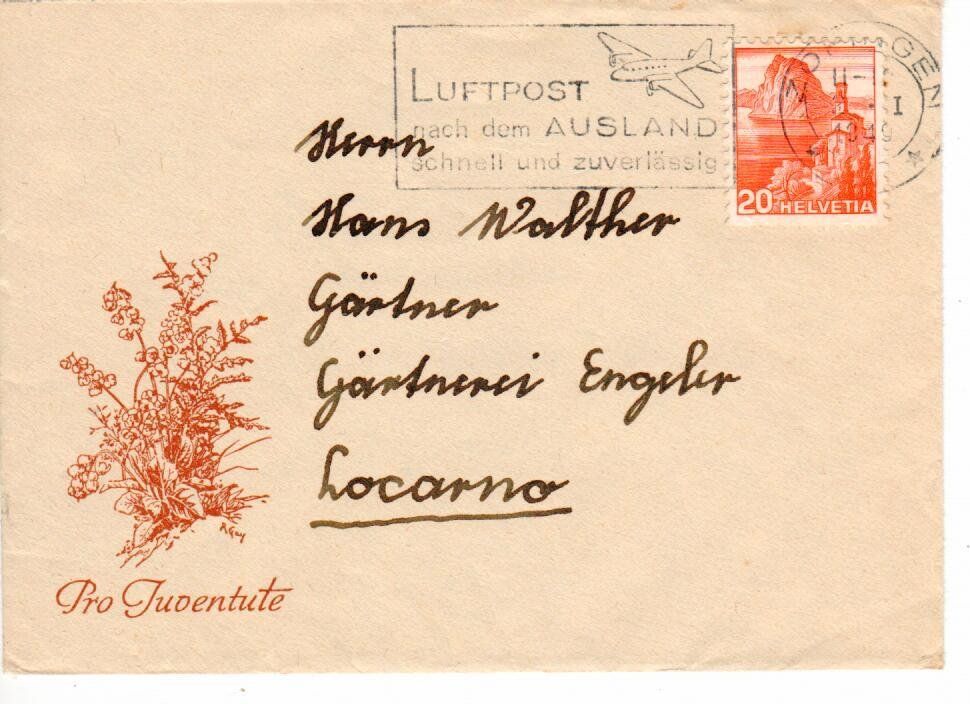 LUFTPOST
nach dem AUSLAND
schnell und zuverlässig
20 HELVETIA
Herrn
Hans Walther
Gärtner
Gärtnerei Engeler
Locarno
Pro Juventute